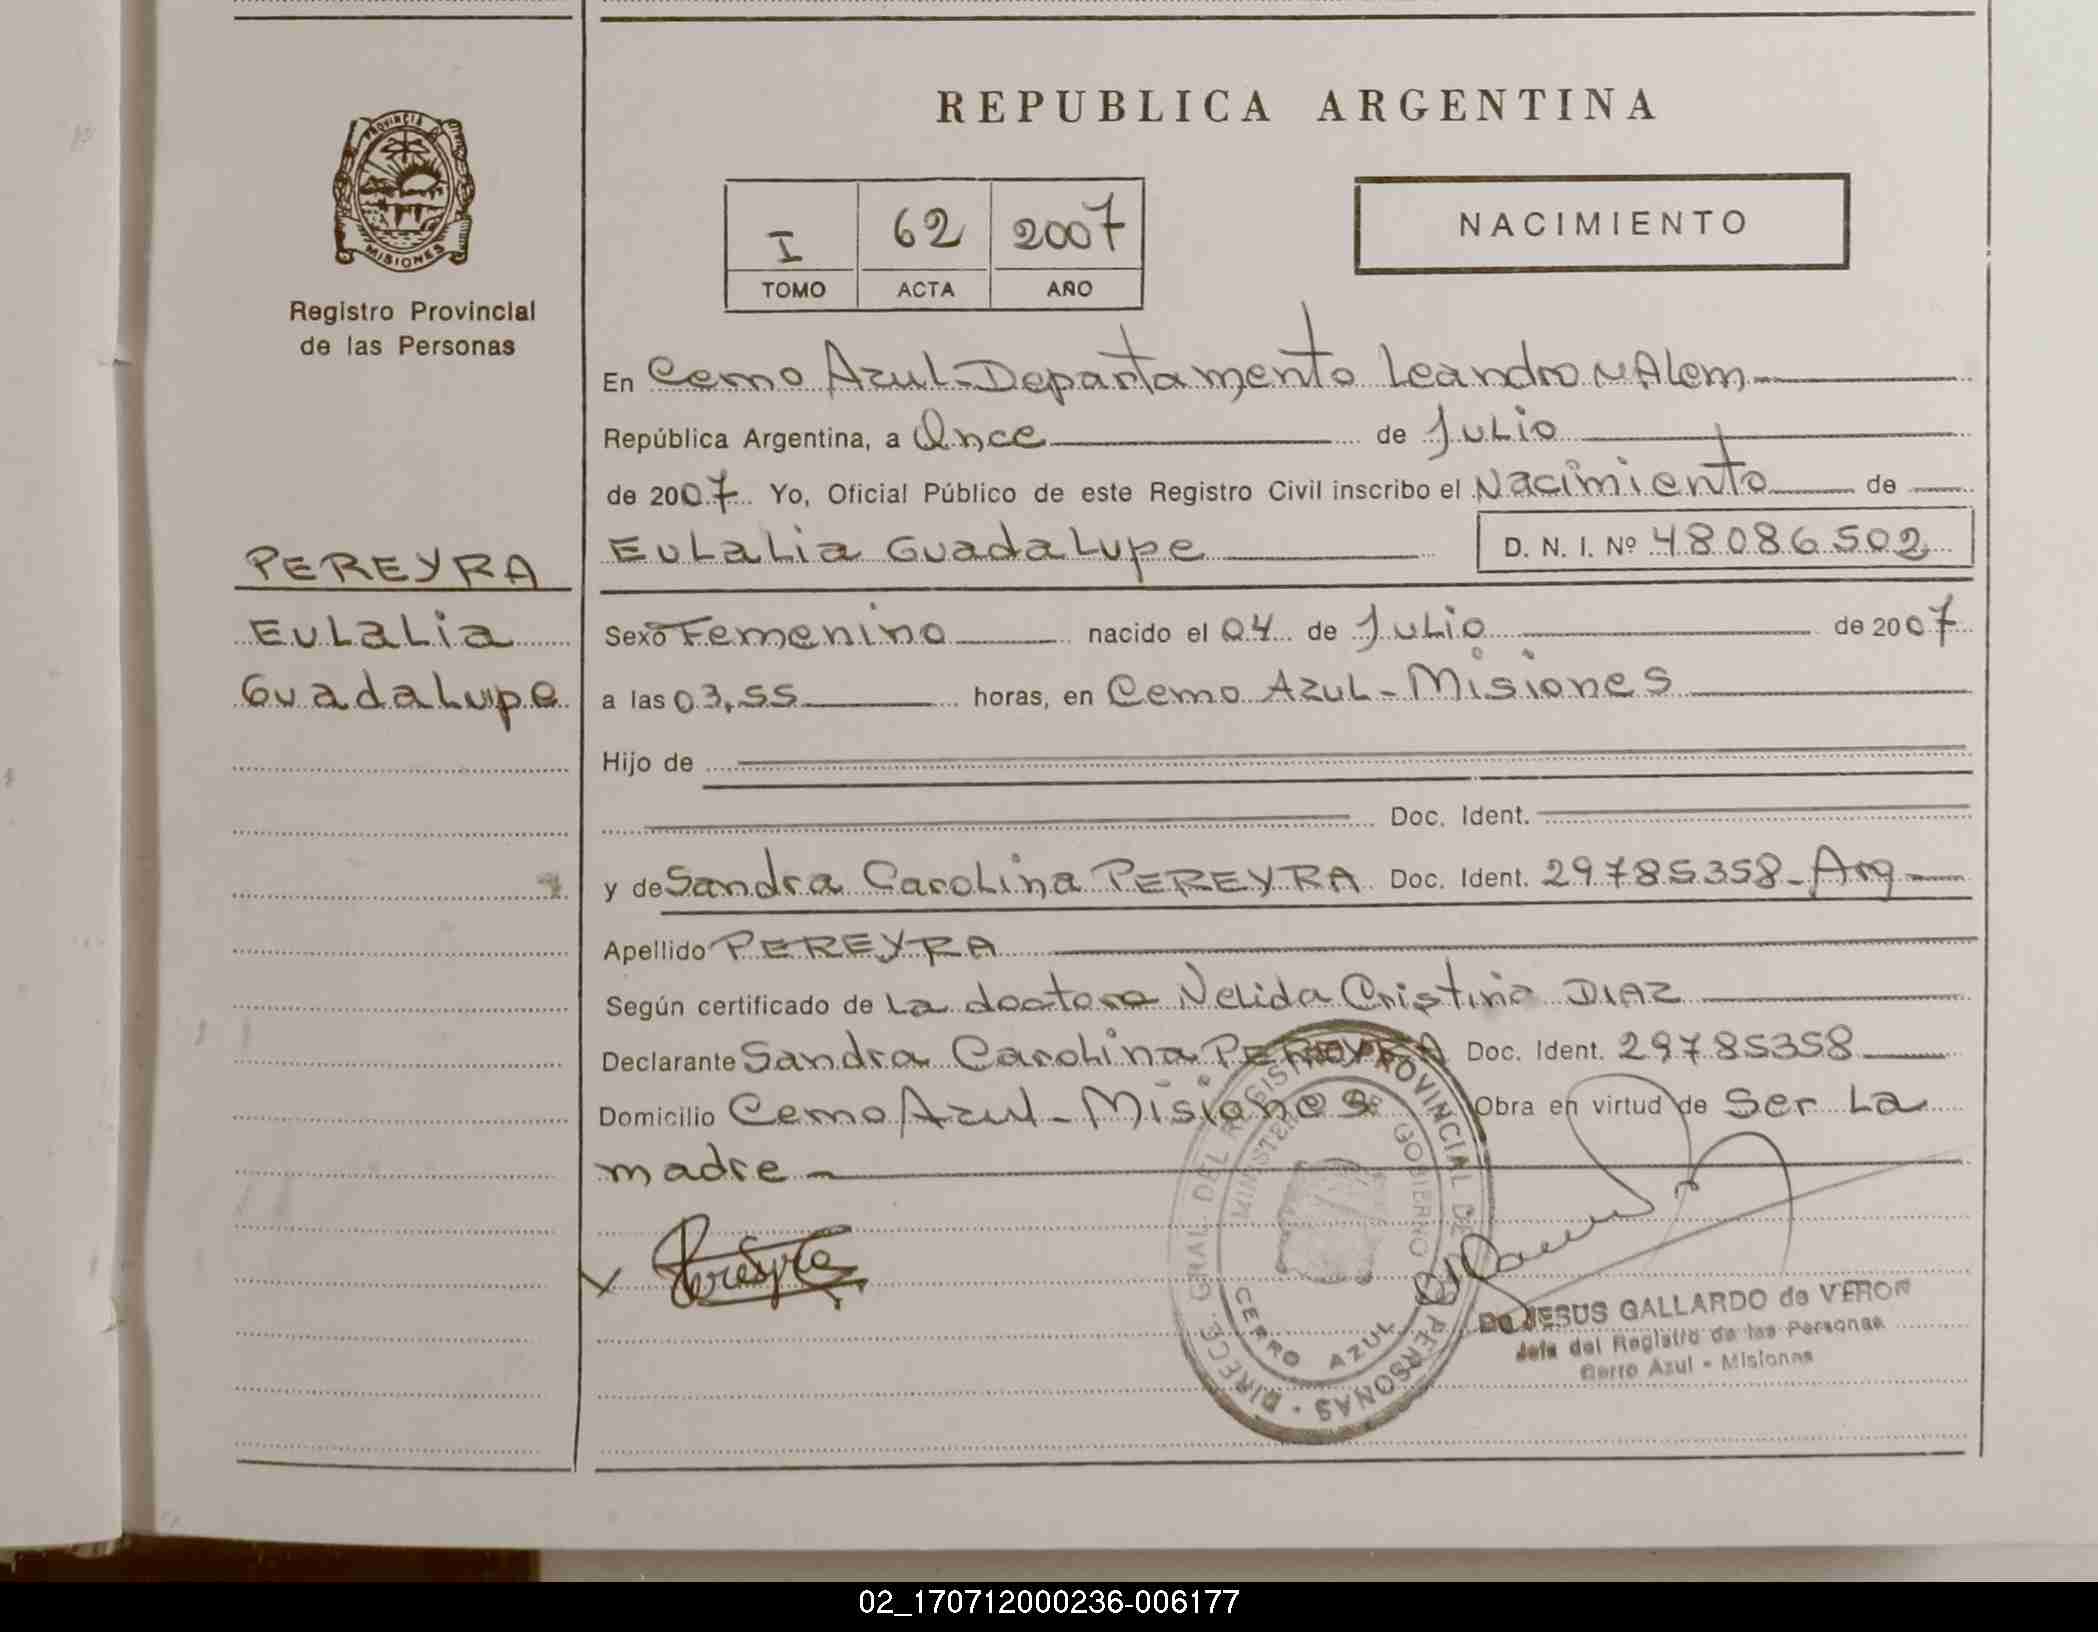 REPUBLICA ARGENTINA
PROVINCIA DE
MISIONES
Registro Provincial
de las Personas
I 62 2007
TOMO ACTA AÑO
NACIMIENTO
En Cerro Azul - Departamento Leandro N Alem
República Argentina, a Once de Julio
de 2007 Yo, Oficial Público de este Registro Civil inscribo el Nacimiento de
Eulalia Guadalupe D. N. I. Nº 48086502
PEREYRA
Eulalia
Guadalupe
Sexo Femenino nacido el 04 de Julio de 2007
a las 03,55 horas, en Cerro Azul - Misiones
Hijo de
Doc. Ident.
y de Sandra Carolina PEREYRA Doc. Ident. 29785358 - Arg
Apellido PEREYRA
Según certificado de la doctora Nelida Cristina DIAZ
Declarante Sandra Carolina PEREYRA Doc. Ident. 29785358
Domicilio Cerro Azul - Misiones Obra en virtud de Ser La
madre
Pereyra
DIREC. GRAL. DEL REGISTRO PROVINCIAL DE PERSONAS
MINISTERIO DE GOBIERNO
CERRO AZUL
JESUS GALLARDO de VERON
Jefa del Registro de las Personas
Cerro Azul - Misiones
02_170712000236-006177